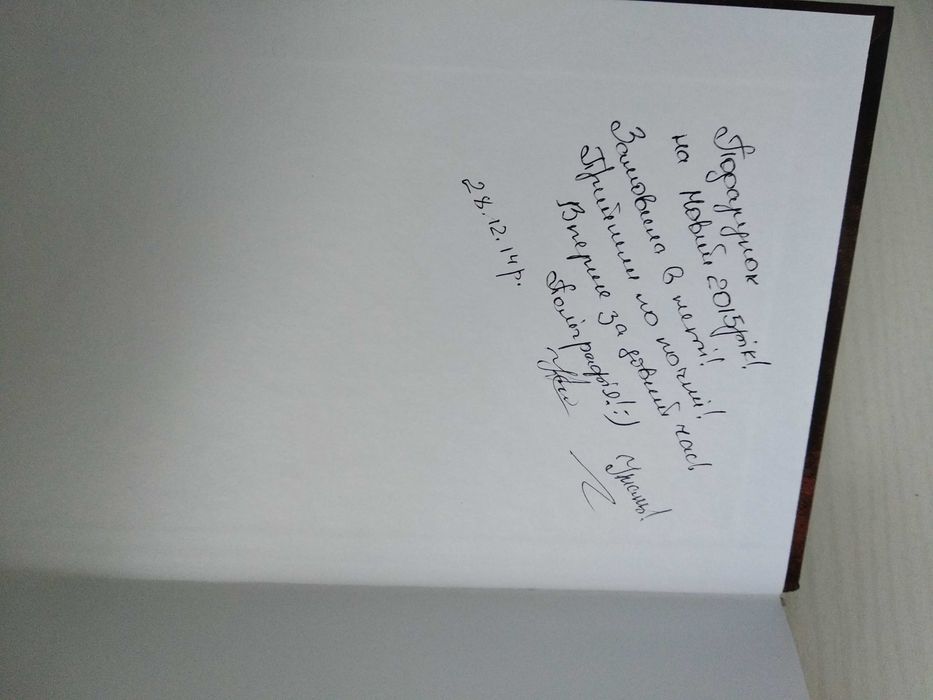 Подарунок
на Новий 2015рік!
Замовила в неті!
Прийшли по почті!
Вперше за довий час
Поліграфія! :) Умань!
28.12.14р.